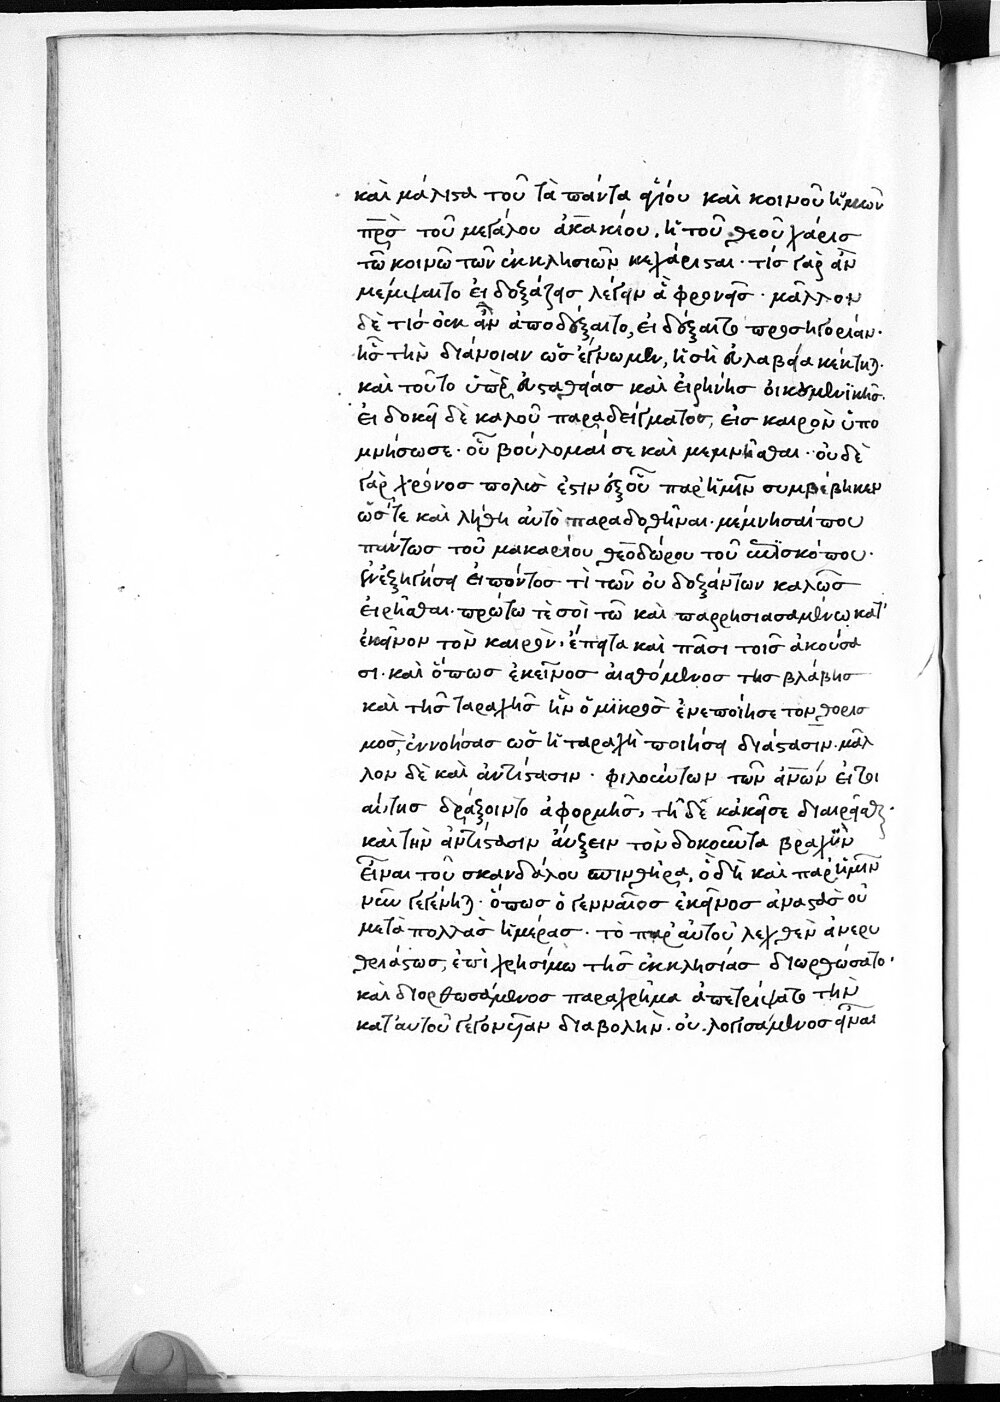 καὶ μάλιστα τοῦ τὰ πάντα ὁσίου καὶ κοινοῦ ἡμῶν
πρσ τοῦ μεγάλου ἀκακίου, ἡ τοῦ θεοῦ χάρισ
τῶ κοινῶ τῶν ἐκκλησιῶν κεχάρισται· τίσ γὰρ ἂν
μέμψαιτο εἰ δοξάζεισ λέγειν ἃ φρονεῖσ· μᾶλλον
δὲ τίσ οὐκ ἂν ἀποδέξαιτο, εἰ δέξαιτο προσηγορίαν·
ἧσ τὴν διάνοιαν ὡσ ἔγνωμεν, ἡ σὴ εὐλαβεία κέκτηται·
καὶ τοῦτο ὑπὲρ εὐσταθείασ καὶ εἰρήνησ οἰκουμενϊκῆσ·
εἰ δοκεῖ δὲ καλοῦ παραδείγματοσ, εἰσ καιρὸν ὑπο
μνήσωσε· οὗ βούλομαί σε καὶ μεμνῆσθαι· οὐδὲ
γὰρ χρόνοσ πολὺσ ἐστιν ἐξοῦ παρἡμῖν συμβέβηκεν
ὥστε καὶ λήθη αὐτὸ παραδοθῆναι· μέμνησαί που
πάντωσ τοῦ μακαρίου θεοδώρου τοῦ ἐπϊσκόπου·
ἐνἐξηγήσει εἰπόντοσ τὶ τῶν οὐ δοξάντων καλῶσ
εἰρῆσθαι· πρώτω τὲ σοὶ τῶ καὶ παρρησιασαμένω κατ'
ἐκεῖνον τὸν καιρὸν· ἔπειτα καὶ πᾶσι τοῖσ ἀκούσα
σι· καὶ ὅπωσ ἐκεῖνοσ αἰσθόμενοσ τῆσ βλάβησ
καὶ τῆσ ταραχῆσ ἣν ὁ μϊκρὸσ ἐνεποίησε τὸν θορυ
μοσ, ἐννοήσασ ὡσ ἡ ταραχὴ ποιήσει διάστασιν· μᾶλ
λον δὲ καὶ ἀντίστασιν· φιλούντων τῶν ἀνων εἴτοι
αὐτῆσ δράξοιντο ἀφορμῆσ, τῆ δὲ κἀκεῖσε διαιρεῖσθαι·
καὶ τὴν ἀντίστασιν αὔξειν τὸν δοκοῦντα βραχὺν
εἶναι τοῦ σκανδάλου σπινθῆρα, ὃ δὴ καὶ παρἡμῖν
νῦν γεγένηται· ὅπωσ ὁ γενναῖοσ ἐκεῖνοσ ἀναστὰσ οὐ
μετὰ πολλὰσ ἡμέρασ· τὸ παρ'αὐτοῦ λεχθὲν ἀνερυ
θριάστωσ, ἐπὶ χρησίμω τῆσ ἐκκλησίασ διωρθώσατο·
καὶ διορθωσάμενοσ παραχρῆμα ἀπετρίψατο τὴν
κατ'αὐτοῦ γεγονυῖαν διαβολὴν· οὐ λογισάμενοσ εἶναι